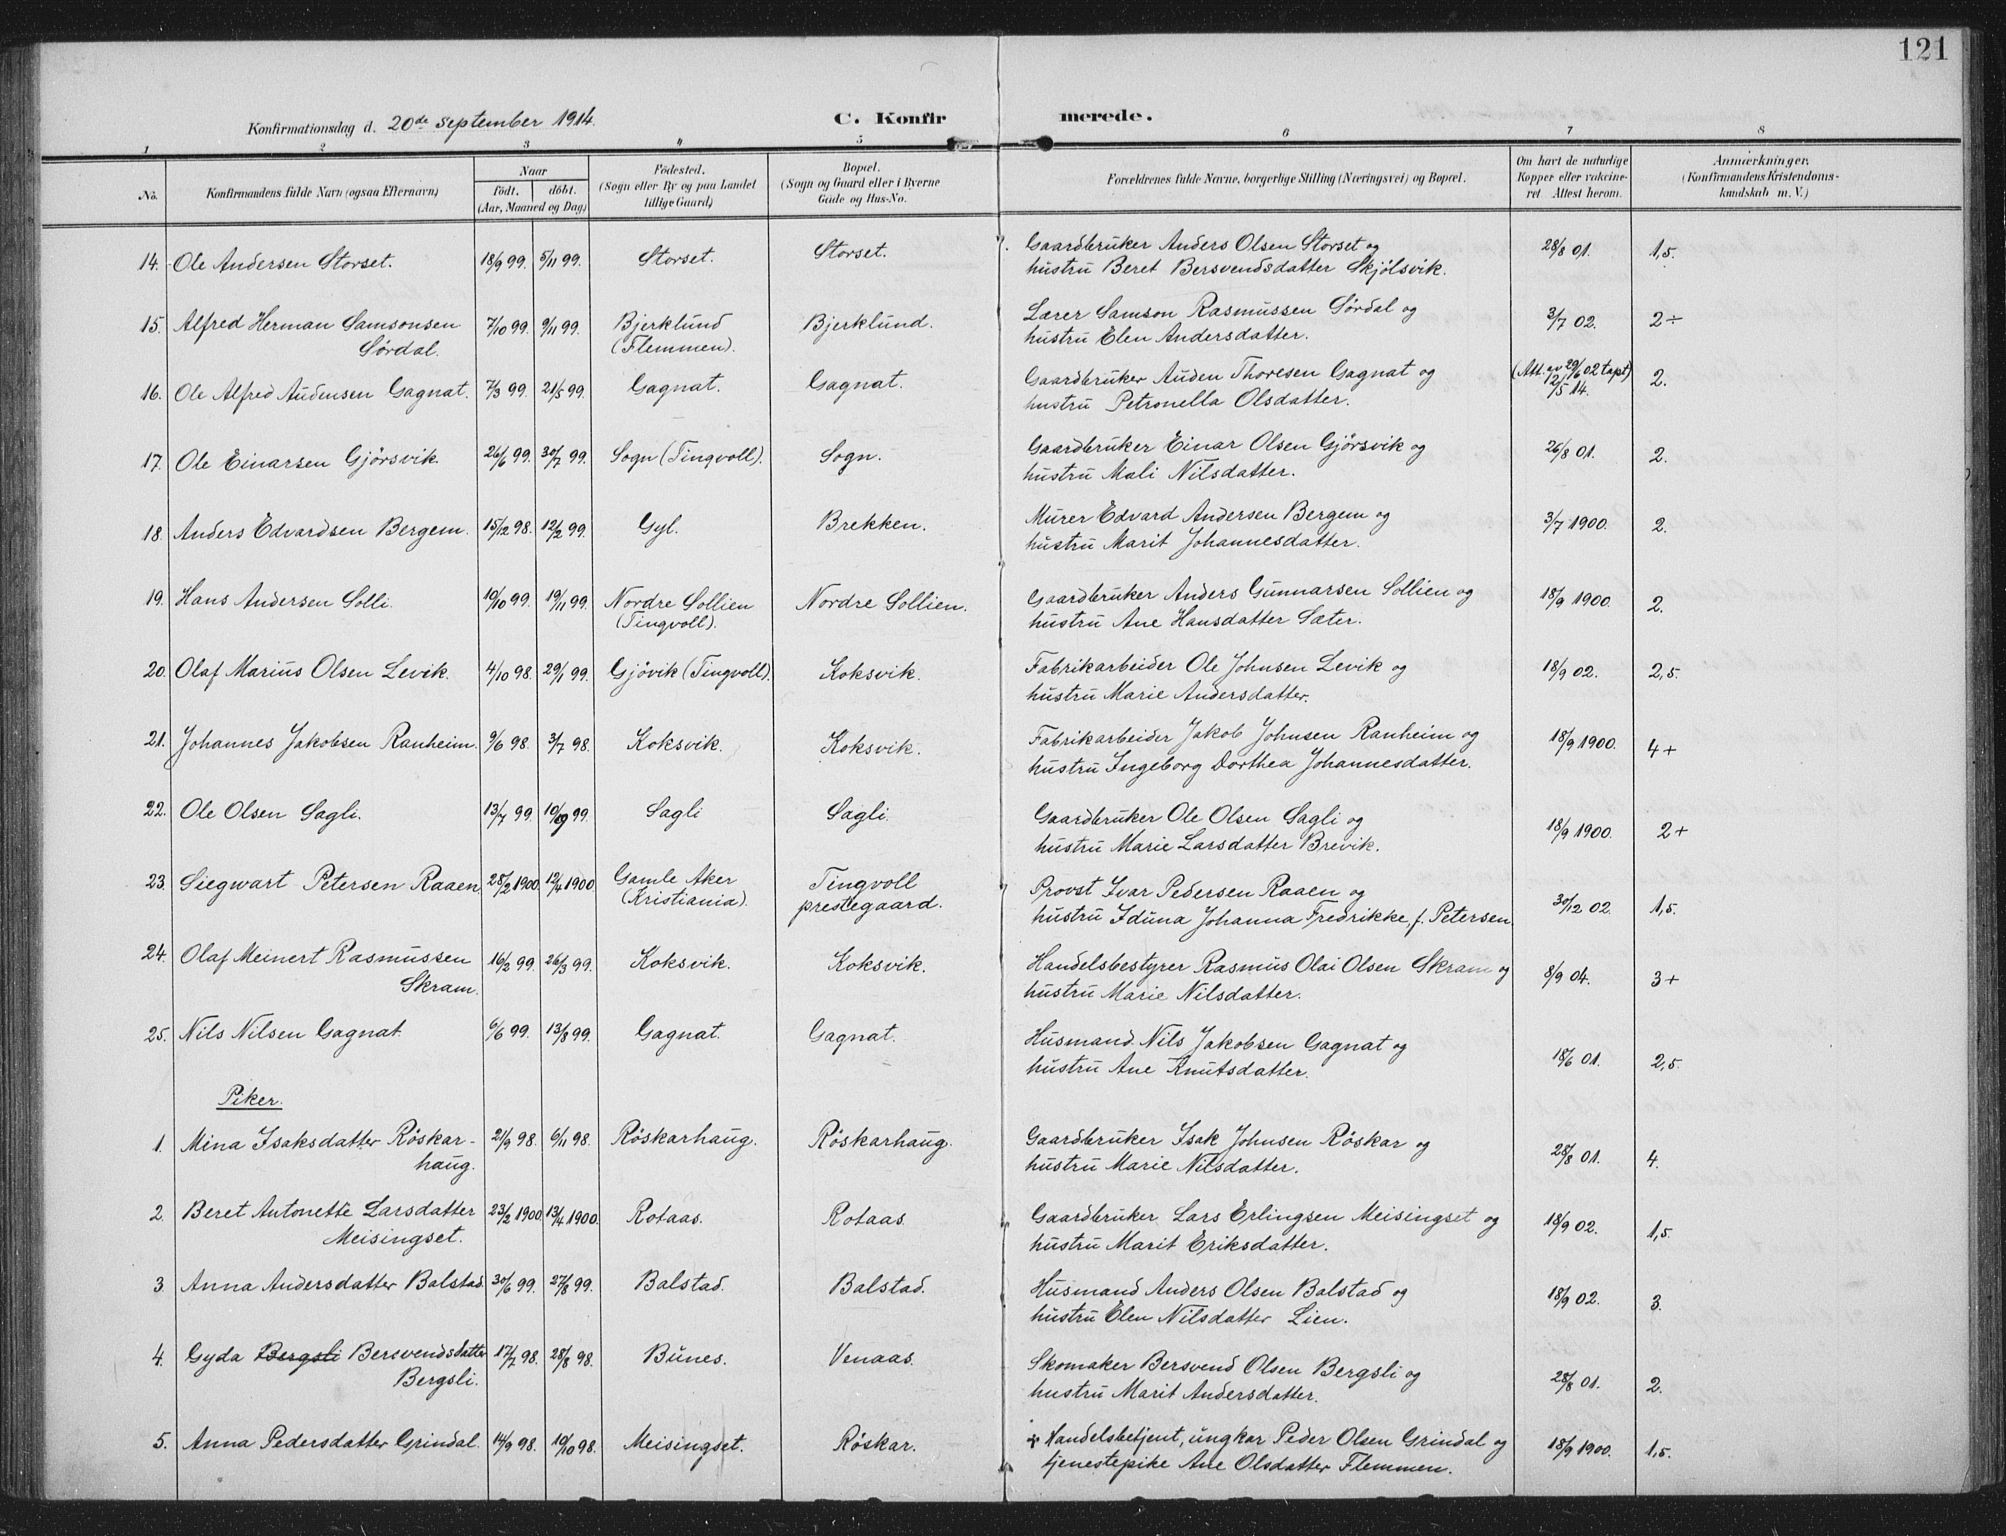 121
Konfirmationsdag d. 20de September 1914. C. Konfirmerede.
1 2 3 4 5 6 7 8
No. Konfirmandens fulde Navn (ogsaa Efternavn) Naar födt. döbt. (Aar, Maaned og Dag) Födested. (Sogn eller By og paa Landet tillige Gaard) Bopæl. (Sogn og Gaard eller i Byerne Gade og Hus-No. Forældrenes fulde Navne, borgerlige Stilling (Næringsvei) og Bopæl. Om havt de naturlige Kopper eller vakcineret Attest herom. Anmærkninger. (Konfirmandens Kristendomskundskab m. V.)
14. Ole Andersen Storset. 18/9 99. 5/11 99. Storset. Storset. Gaardbruker Anders Olsen Storset og 28/8 01. 1,5.
hustru Beret Bersvendsdatter Skjölsvik.
15. Alfred Herman Samsonsen 7/10 99. 9/11 99. Bjerklund Bjerklund. Lærer Samson Rasmussen Sördal og 3/7 02. 2÷
Sördal. (Flemmen). hustru Elen Andersdatter.
16. Ole Alfred Audensen Gagnat. 7/3 99. 21/5 99. Gagnat. Gagnat. Gaardbruker Auden Thoresen Gagnat og (Att. av 29/6 02 tapt) 2.
hustru Petronella Olsdatter. 12/5 14.
17. Ole Einarsen Gjörsvik. 26/6 99. 30/7 99. Sogn (Tingvoll). Sogn. Gaardbruker Einar Olsen Gjörsvik og 26/8 01. 2.
hustru Mali Nilsdatter.
18. Anders Edvardsen Bergem. 15/12 98. 12/2 99. Gyl. Brekken. Murer Edvard Andersen Bergem og 3/7 1900. 2.
hustru Marit Johannesdatter.
19. Hans Andersen Solli. 10/10 99. 19/11 99. Nordre Sollien Nordre Sollien. Gaardbruker Anders Gunnarsen Sollien og 18/9 1900. 2.
(Tingvoll). hustru Ane Hansdatter Sæter.
20. Olaf Marius Olsen Levik. 4/10 98. 29/1 99. Gjövik (Tingvoll). Koksvik. Fabrikarbeider Ole Johnsen Levik og 18/9 02. 2,5.
hustru Marie Andersdatter.
21. Johannes Jakobsen Ranheim. 9/6 98. 3/7 98. Koksvik. Koksvik. Fabrikarbeider Jakob Johnsen Ranheim og 18/9 1900. 4+
hustru Ingeborg Dorthea Johannesdatter.
22. Ole Olsen Sagli. 13/7 99. 10/9 99. Sagli Sagli. Gaardbruker Ole Olsen Sagli og 18/9 1900. 2+
hustru Marie Larsdatter Brevik.
23. Siegwart Petersen Raaen 28/2 1900. 12/4 1900 Gamle Aker Tingvoll Provst Ivar Pedersen Raaen og 30/12 02. 1,5.
(Kristiania). prestegaard. hustru Iduna Johanna Fredrikke, f. Petersen.
24. Olaf Meinert Rasmussen 16/2 99. 26/3 99. Koksvik. Koksvik. Handelsbestyrer Rasmus Olai Olsen Skram og 8/9 04. 3+
Skram. hustru Marie Nilsdatter.
25. Nils Nilsen Gagnat. 6/6 99. 13/8 99. Gagnat. Gagnat. Husmand Nils Jakobsen Gagnat og 18/6 01. 2,5.
hustru Ane Knutsdatter.
Piker.
1. Mina Isaksdatter Röskar- 21/9 98. 6/11 98. Röskarhaug. Röskarhaug. Gaardbruker Isak Johnsen Röskar og 28/8 01. 4.
haug. hustru Marie Nilsdatter.
2. Beret Antonette Larsdatter 23/2 1900. 13/4 1900. Rotaas. Rotaas. Gaardbruker Lars Erlingsen Meisingset og 18/9 02. 1,5.
Meisingset. hustru Marit Eriksdatter.
3. Anna Andersdatter Balstad. 30/6 99. 27/8 99. Balstad. Balstad. Husmand Anders Olsen Balstad og 18/9 02. 3.
hustru Elen Nilsdatter Lien.
4. Gyda Bergsli Bersvendsdatter 17/7 98. 28/8 98. Bunes. Venaas. Skomaker Bersvend Olsen Bergsli og 28/8 01. 2.
Bergsli. hustru Marit Andersdatter.
5. Anna Pedersdatter Grindal. 14/9 98. 10/10 98. Meisingset. Röskar. Handelsbetjent, ungkar Peder Olsen Grindal og 18/9 1900. 1,5.
tjenestepike Ane Olsdatter Flemmen.